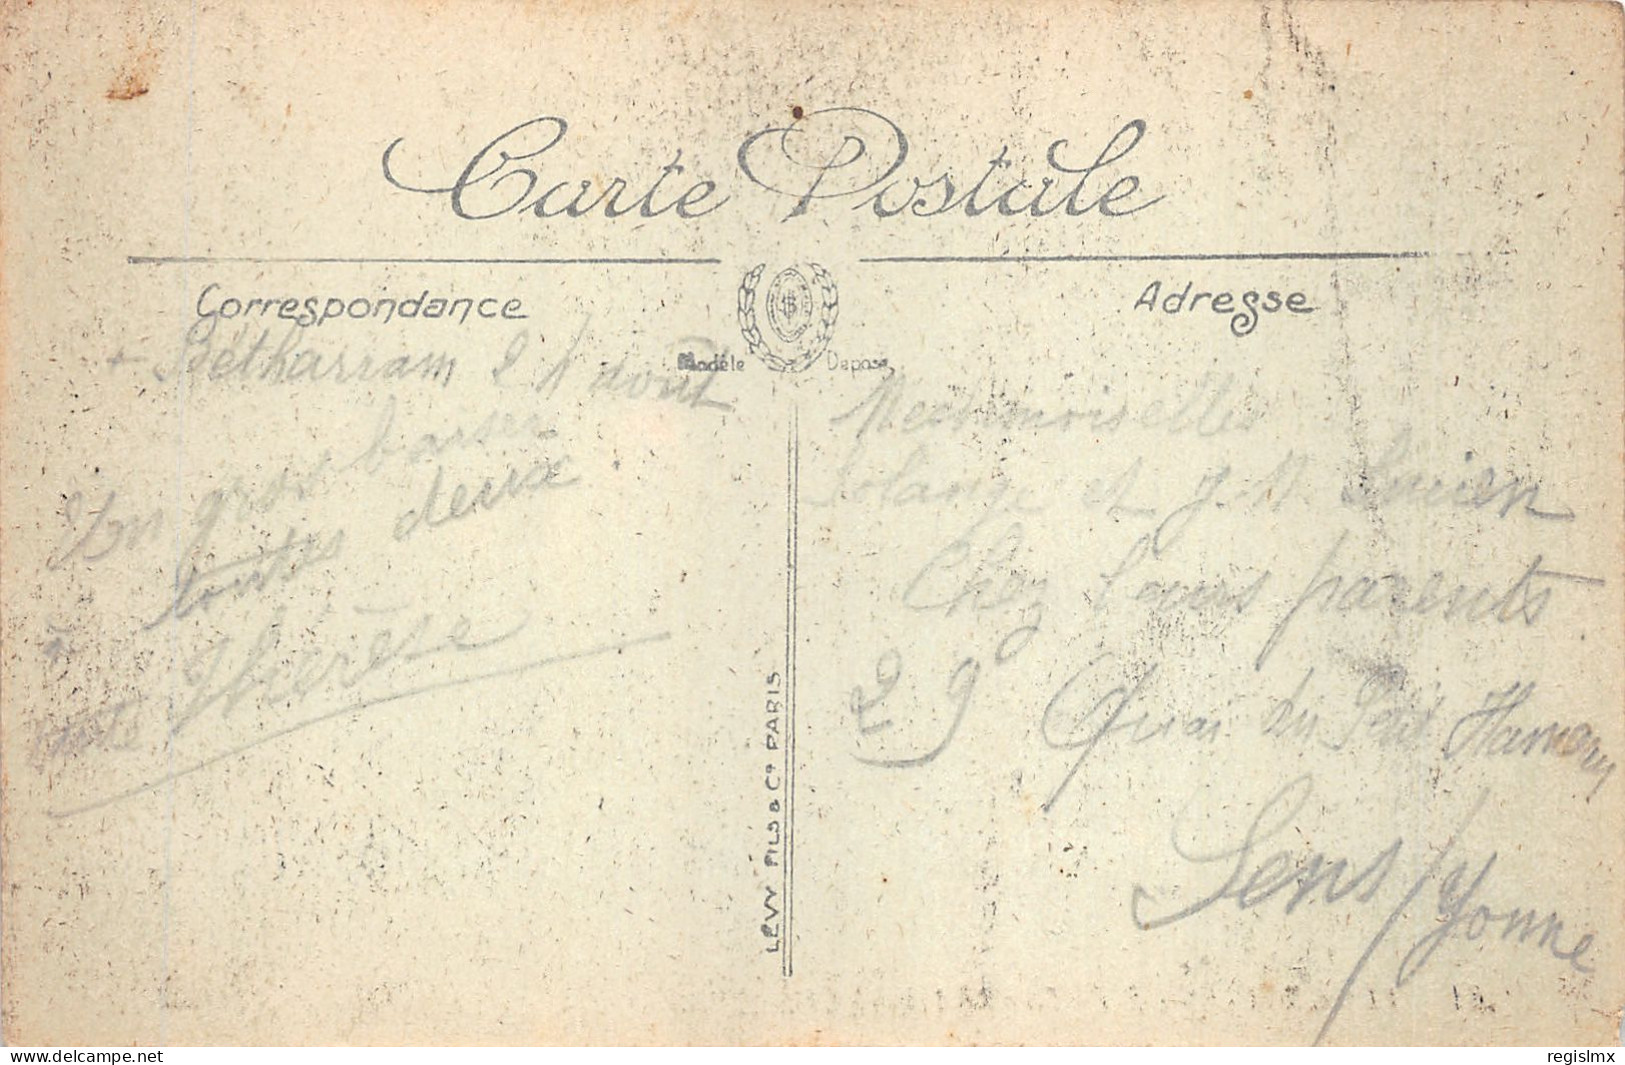 Carte Postale
Correspondance
Adresse
Modèle Déposé
+ Bétharram 2 Août
Un gros baiser
toutes deux
Thérèse
Mesdemoiselles
Solange et J. M. Lucien
Chez leurs parents
29 Quai du Petit Hameau
Sens / Yonne
LÉVY FILS & Cº PARIS
www.delcampe.net
regislmx